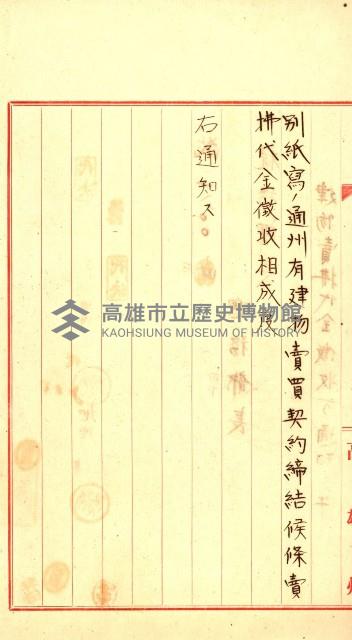 別紙寫ノ通州有建物賣買契約締結候條賣
拂代金徵收相成度
右通知ス。
高雄市立歷史博物館
KAOHSIUNG MUSEUM OF HISTORY
高雄州